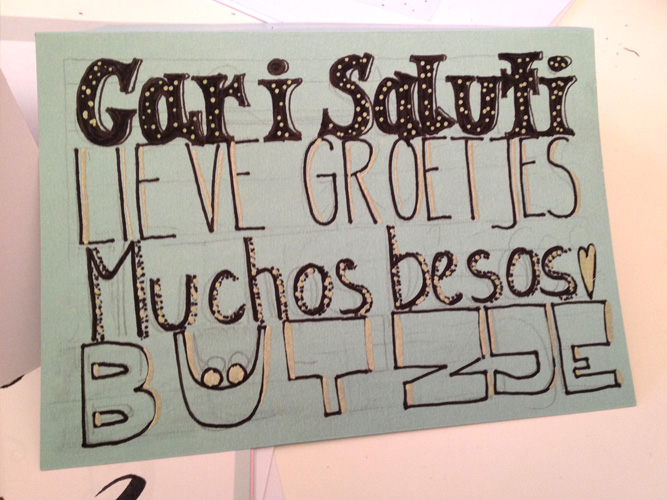 Gari Saluti
LIEVE GROETJES
Muchos besos
BUTZJE